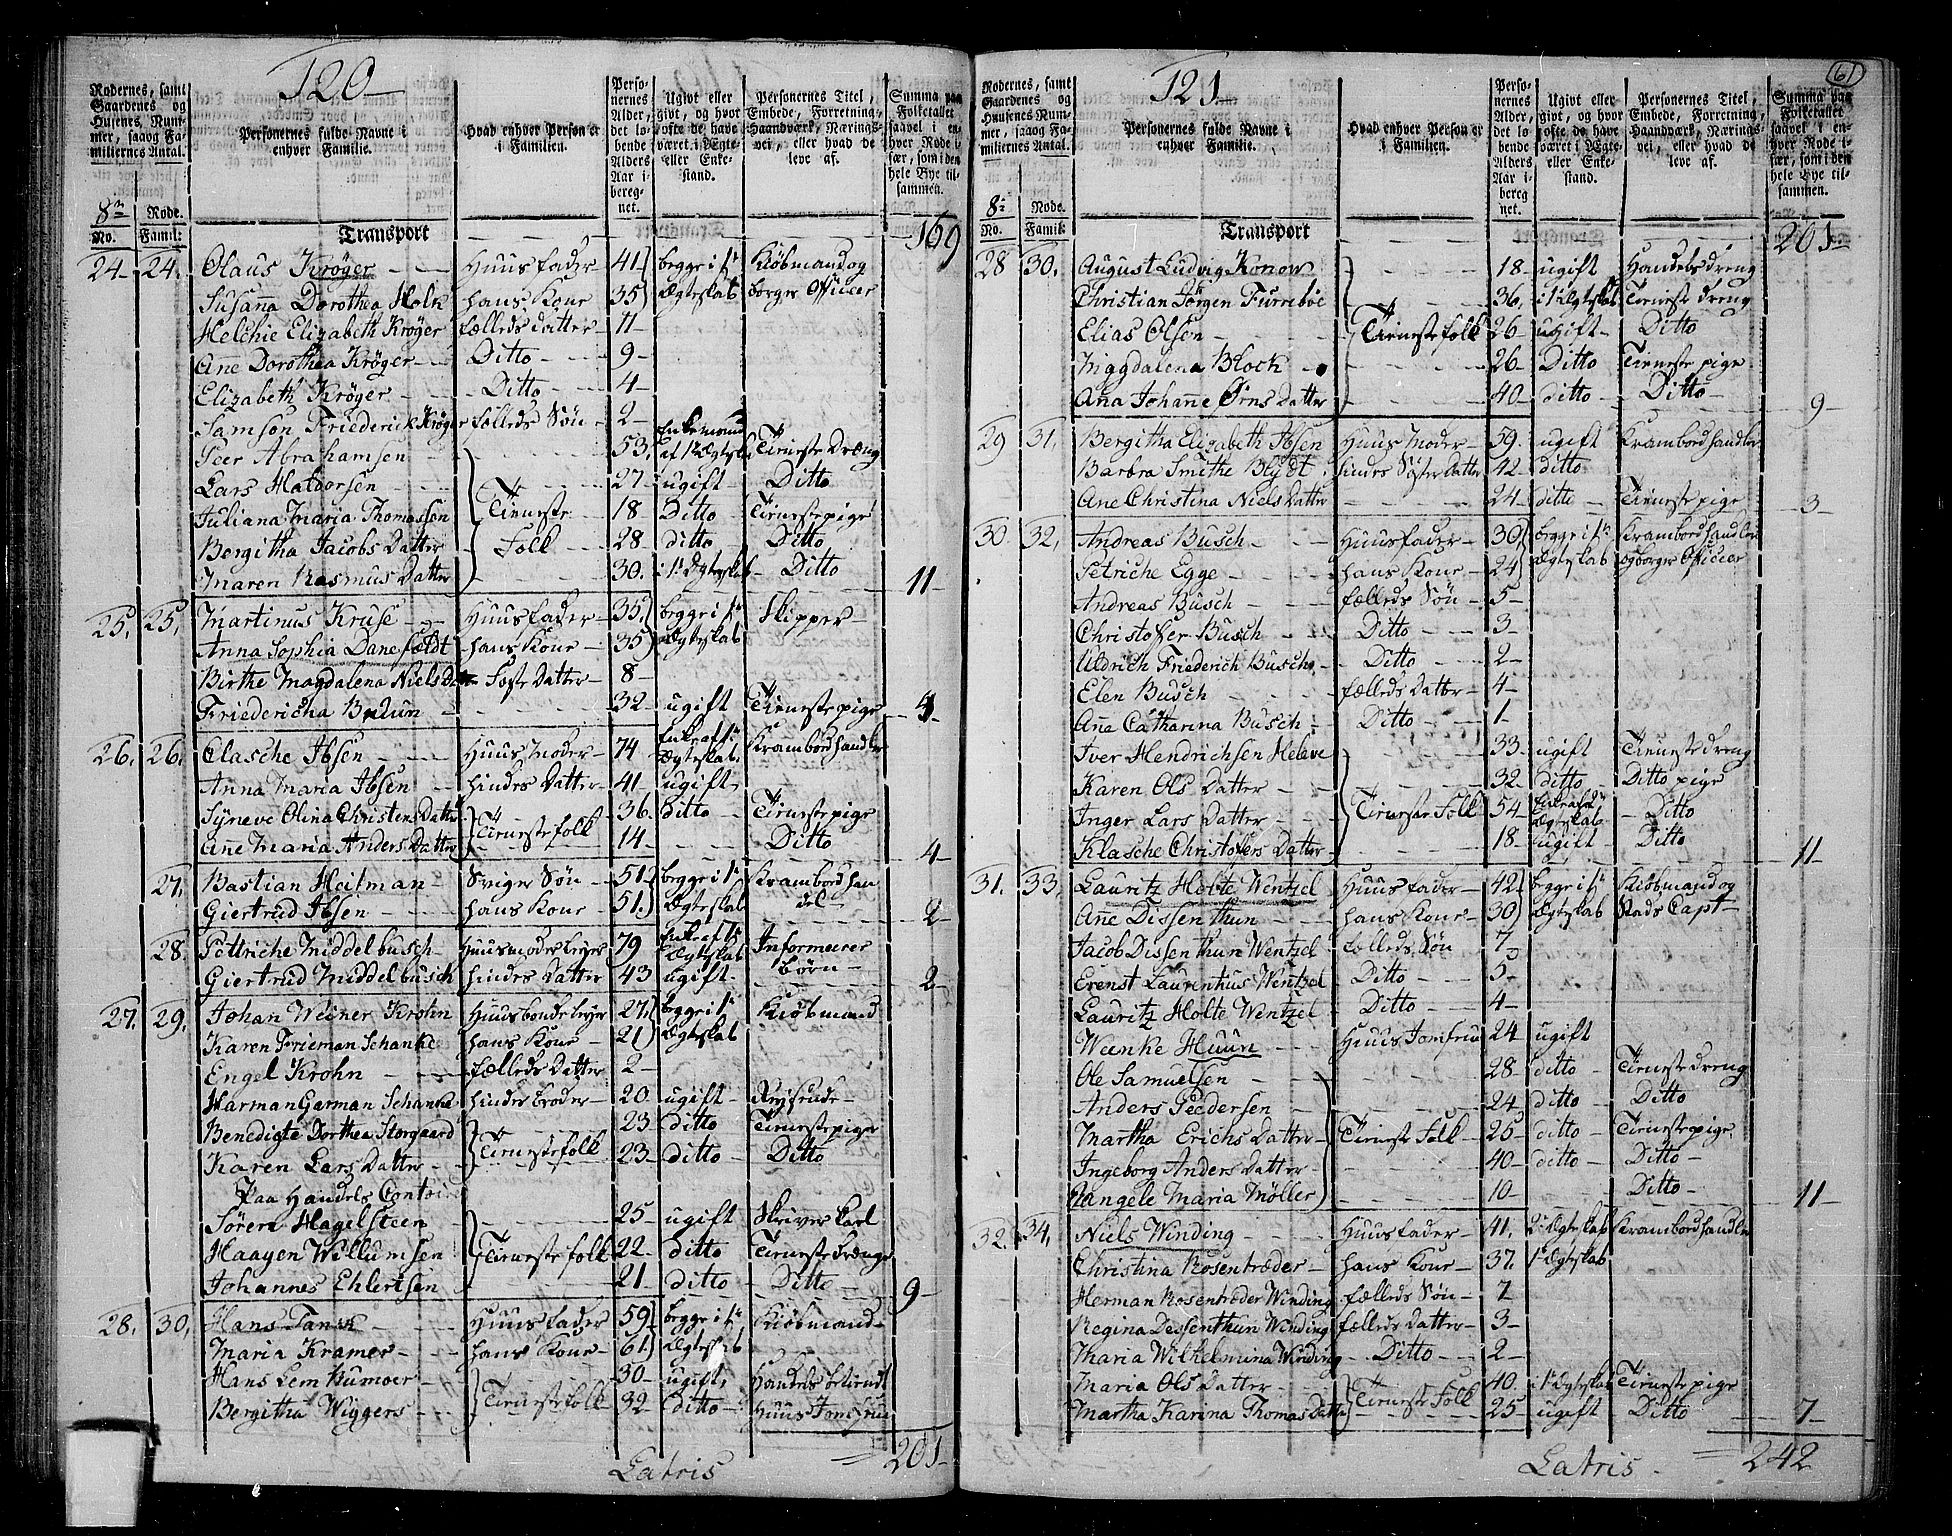 120
Rodernes, samt Gaardenes og Husenes, Nummer, saavog Familiernes Antal.
Personernes fulde Navne i enhver Familie.
Hvad enhver Person er i Familien.
Personernes Alder, det løbende Alders Aar iberegnet.
Ugivt eller givt, og hvor ofte de have været i Ægte- eller Enkestand.
Personernes Titel, Embede, Forretning, Haandværk, Næringsvei, eller hvad de leve af.
Summa paa Folketallet saavel i enhver Rode især, som i den hele Bye tilsammen.
8de Rode.
No. Famil:
Transport 169
24 24. Olaus Krøger Huusfader 41 begge i 1ste Kiøbmand og
Susanna Dorothea Holk hans Kone 35 Ægteskab borger Officer
Helchie Elizabeth Krøger fælleds datter 11
Ane Dorothea Krøger Ditto 9
Elizabeth Krøger Ditto 4
Samson Friederick Krøger fælleds Søn 2
Peer Abrahamsen 53. Enkemand af 1 Ægtesk. Tieneste Dreng
Lars Haldorsen 27 ugift Ditto
Juliana Maria Thomassen Tieneste 18 Ditto Tienestepige
Bergitha Jacobs Datter Folk 28 ditto Ditto
Maren Rasmus Datter 30. i 1ste Ægteskab Ditto 11
25. 25. Martinus Kruse Huusfader 35 begge i 1ste Skipper
Anna Sophia Danefeldt hans Kone 35 Ægteskab
Birthe Magdalena Niels D. Foster Datter 8
Friedericha Bruun 32 ugift Tienestepige 4
26. 26. Clasche Ibsen Huus Moder 74 Enke af 1ste Ægteskab. Krambodhandler
Anna Maria Ibsen hindes Datter 41 ugift
Syneve Olina Christens Datter Tienestefolk 36 ditto Tienestepige
Ane Maria Anders Datter 14 Ditto 4
27. Bastian Heitman Sviger Søn 51 begge i 1ste Krambod han
Giertrud Ibsen hans Kone 51. Ægteskab del 2
28. Pettriche Middelbusch Huusmoder leyer 79 Enke af 1ste Ægteskab Informerer
Giertrud Middelbusch hindes datter 43 ugift børn 2
27. 29. Johan Weiner Krohn Huusbonde leyer 27. begge i 1ste Kiøbmand
Karen Frieman Schanke hans Kone 21 Ægteskab
Engel Krohn fælleds Datter 2
Harman Garman Schanke hindes broder 20 ugift
Benedigte Dorthea Storgaard 23 ditto Tienestepige
Karen Lars Datter Tienestefolk 23 ditto Ditto
Paa Handels Contoir
Søren Hagelsteen 25 ugift Skriver Karl
Haagen Willumsen Tienestefolk 22 ditto Tieneste drenge
Johannes Ehlertsen 21 ditto Ditto 9
28. 30. Hans Tanck Huusfader 59 begge i 1ste Kiøbmand
Maria Kramer hans Kone 61 Ægteskab
Hans Lem Kumoer Tienestefolk 30 ugift Handels betient
Bergitha Wiggers 32 ditto Huus Jomfrue
Latris 201
61
121
Rodernes, samt Gaardenes og Husenes Nummer, saavog Familiernes Antal.
Personernes fulde Navne i enhver Familie.
Hvad enhver Person er i Familien.
Personernes Alder, det løbende Alders Aar iberegnet.
Ugivt eller givt, og hvor ofte de have været i Ægte- eller Enkestand.
Personernes Titel, Embede, Forretning, Haandværk, Næringsvei, eller hvad de leve af.
Summa paa Folketallet saavel i enhver Rode især, som i den hele Bye tilsammen.
8de Rode.
No. Famil:
Transport 201
28 30. August Ludvig Konow 18 ugift Handelsdreng
Christian Jørgen Furreboe 36. i 1ste Ægteskab Tieneste dreng
Elias Olsen Tienestefolk 26 ugift Ditto
Maggdalena Block 26 Ditto Tienestepige
Ana Johanne Ørns Datter 40 ditto Ditto 9
29 31. Bergitha Elizabeth Ibsen Huus Moder 59. ugift Krambodhandler
Barbra Smithe Blydt hindes Søster Datter 42 ditto
Ane Christina Niels Datter 24 ditto Tienestepige 3
30 32. Andreas Busch Huusfader 30 begge i 1ste Krambodhandler
Petriche Egge hans Kone 24 Ægteskab og borger Officer
Andreas Busch fælleds Søn 5
Christoffer Busch Ditto 3
Uldrich Friederich Busch Ditto 2
Elen Busch fælleds datter 4
Ane Catharina Busch Ditto 1
Iver Hendrichsen Heleve 33 ugift Tieneste dreng
Karen Ols Datter 32 ditto Ditto pige
Inger Lars Datter Tieneste Folk 54 Enke af 2det Ægteskab Ditto
Klasche Christoffers Datter 18 ugift Ditto 11
31. 33. Lauritz Holte Wentzel Huusfader 42 begge i 1ste Kiøbmand og
Ane Dissenthun hans Kone 30 Ægteskab Stads Capt
Jacob Dissenthun Wentzel fælleds Søn 7
Erenst Laurenthus Wentzel Ditto 5
Lauritz Holte Wentzel Ditto 4
Wenke Huun Huus Jomfrue 24 ugift
Ole Samuelsen 28 ditto Tieneste dreng
Anders Pedersen 24 ditto Ditto
Martha Erichs Datter Tieneste Folk 25 ditto Tienestepige
Ingeborg Anders datter 40 ditto Ditto
Angele Maria Møller 10 Ditto 11
32. 34. Niels Winding Huusfader 41. 2det Ægteskab Krambodhandler
Christina Rosentræder hans Kone 37. 1ste Ægteskab
Herman Rosentræder Winding fælleds Søn 7
Regina Dessenthun Winding fælleds datter 3
Maria Wilhelmina Winding Ditto 2
Maria Ols Datter Tieneste Folk 40. i 1ste Ægteskab Tienestepige
Martha Karina Thomas Datter 25 ugift Ditto 7
Latris 242